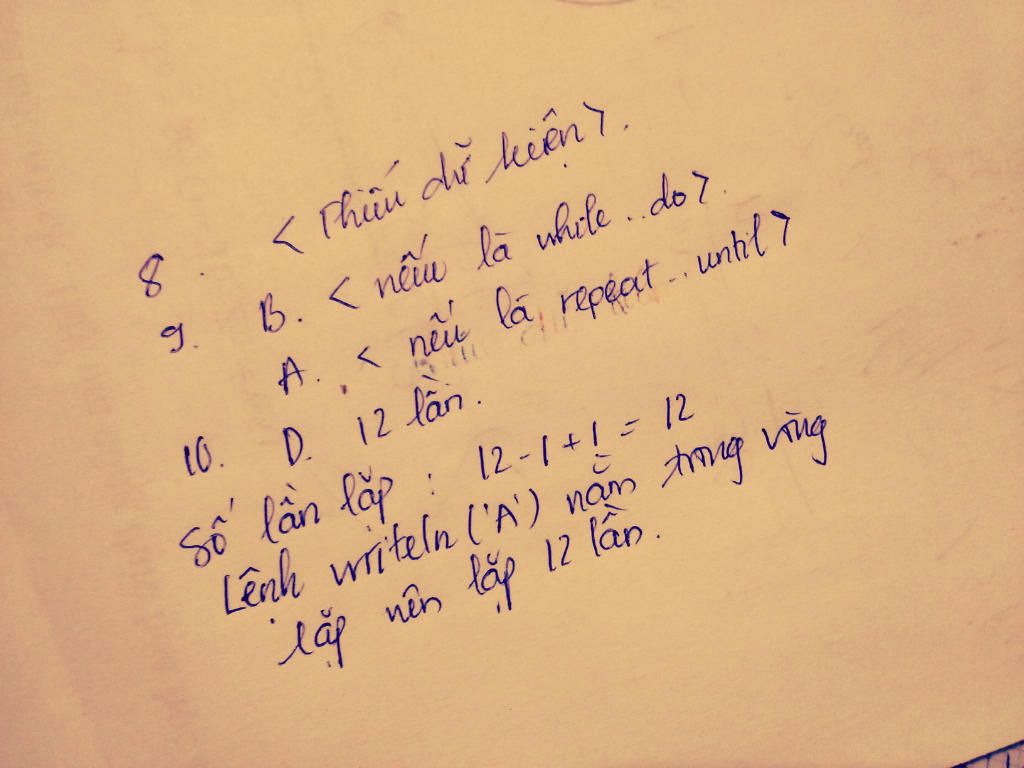 8. < Thiếu dữ kiện >.
9. B. < nếu là while..do >.
A. < nếu là repeat..until >
10. D. 12 lần.
Số lần lặp : 12 - 1 + 1 = 12
Lệnh writeln ('A') nằm trong vòng
lặp nên lặp 12 lần.